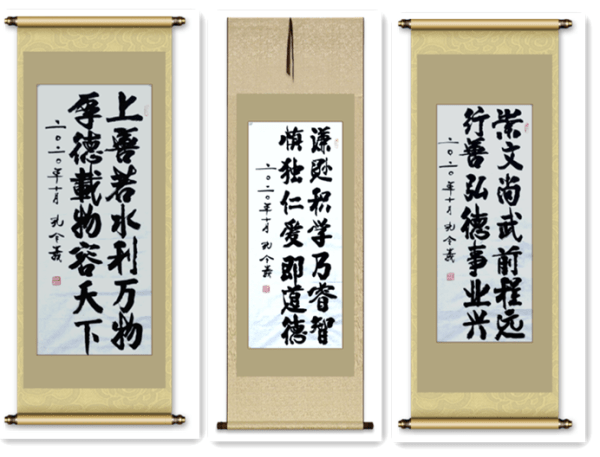 上善若水利万物
厚德載物容天下
二〇二〇年十月 孔令義
谦逊积学乃睿智
慎独仁爱即道德
二〇二〇年十月 孔令義
崇文尚武前程远
行善弘德事业兴
二〇二〇年十月 孔令義